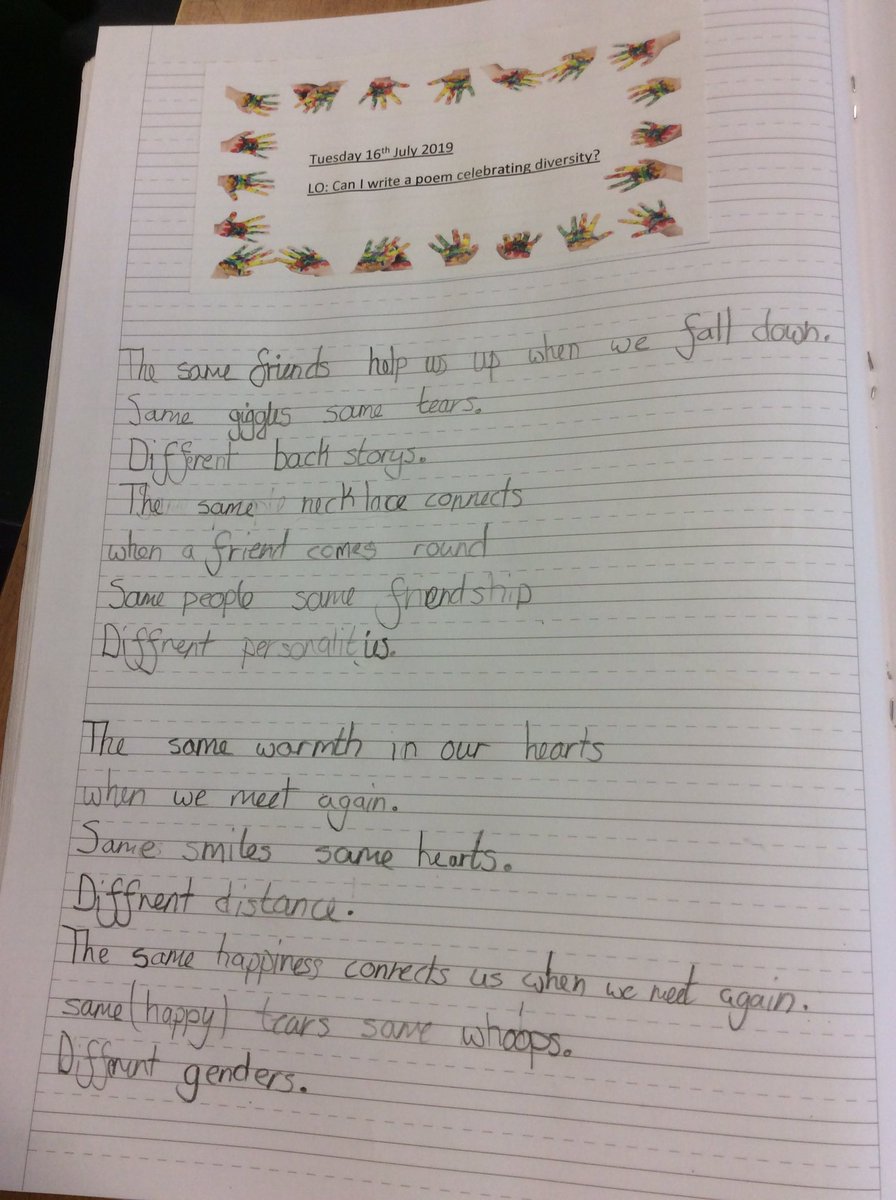 Tuesday 16th July 2019
LO: Can I write a poem celebrating diversity?
The same friends help us up when we fall down.
Same giggles same tears.
Different back storys.
The same necklace connects
when a friend comes round
Same people same friendship
Diffrent personalities.
The same warmth in our hearts
when we meet again.
Same smiles same hearts.
Diffrent distance.
The same happiness connects us when we meet again.
same (happy) tears same whoops.
Different genders.